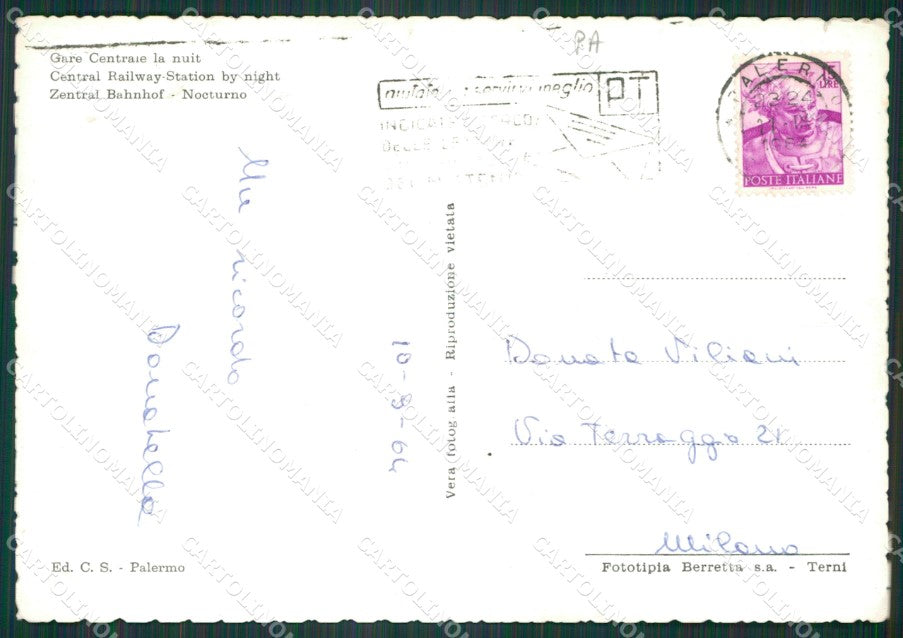 Gare Centrale la nuit
Central Railway-Station by night
Zentral Bahnhof - Nocturno
PA
aiutateci a servirvi meglio
PT
INDICATE
DELLE
PALERMO
LIRE
POSTE ITALIANE
Un ricordo
Donatella
10-9-64
Vera fotografia - Riproduzione vietata
Donata Viliani
Via Terraggio 21
Milano
Ed. C. S. - Palermo
Fototipia Berretta s.a. - Terni
CARTOLINOMANIA